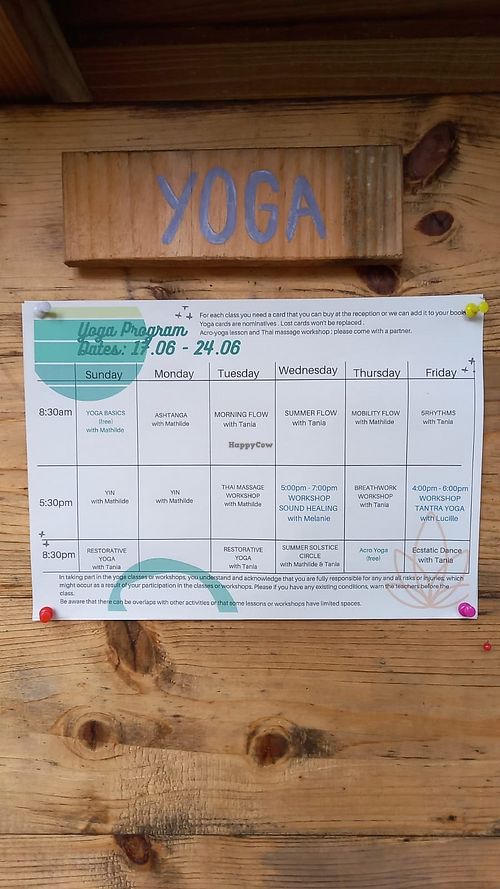 YOGA
For each class you need a card that you can buy at the reception or we can add it to your book
Yoga cards are nominatives . Lost cards won't be replaced .
Acro-yoga lesson and Thai massage workshop : please come with a partner.
Yoga Program
Dates: 17.06 - 24.06
Sunday Monday Tuesday Wednesday Thursday Friday
8:30am
YOGA BASICS
(free)
with Mathilde
ASHTANGA
with Mathilde
MORNING FLOW
with Tania
SUMMER FLOW
with Tania
MOBILITY FLOW
with Mathilde
5RHYTHMS
with Tania
HappyCow
5:30pm
YIN
with Mathilde
YIN
with Mathilde
THAI MASSAGE
WORKSHOP
with Mathilde
5:00pm - 7:00pm
WORKSHOP
SOUND HEALING
with Melanie
BREATHWORK
WORKSHOP
with Tania
4:00pm - 6:00pm
WORKSHOP
TANTRA YOGA
with Lucille
8:30pm
RESTORATIVE
YOGA
with Tania
RESTORATIVE
YOGA
with Tania
SUMMER SOLSTICE
CIRCLE
with Mathilde & Tania
Acro Yoga
(free)
Ecstatic Dance
with Tania
In taking part in the yoga classes or workshops, you understand and acknowledge that you are fully responsible for any and all risks or injuries, which
might occur as a result of your participation in the classes or workshops. Please if you have any existing conditions, warn the teachers before the
class.
Be aware that there can be overlaps with other activities or that some lessons or workshops have limited spaces.